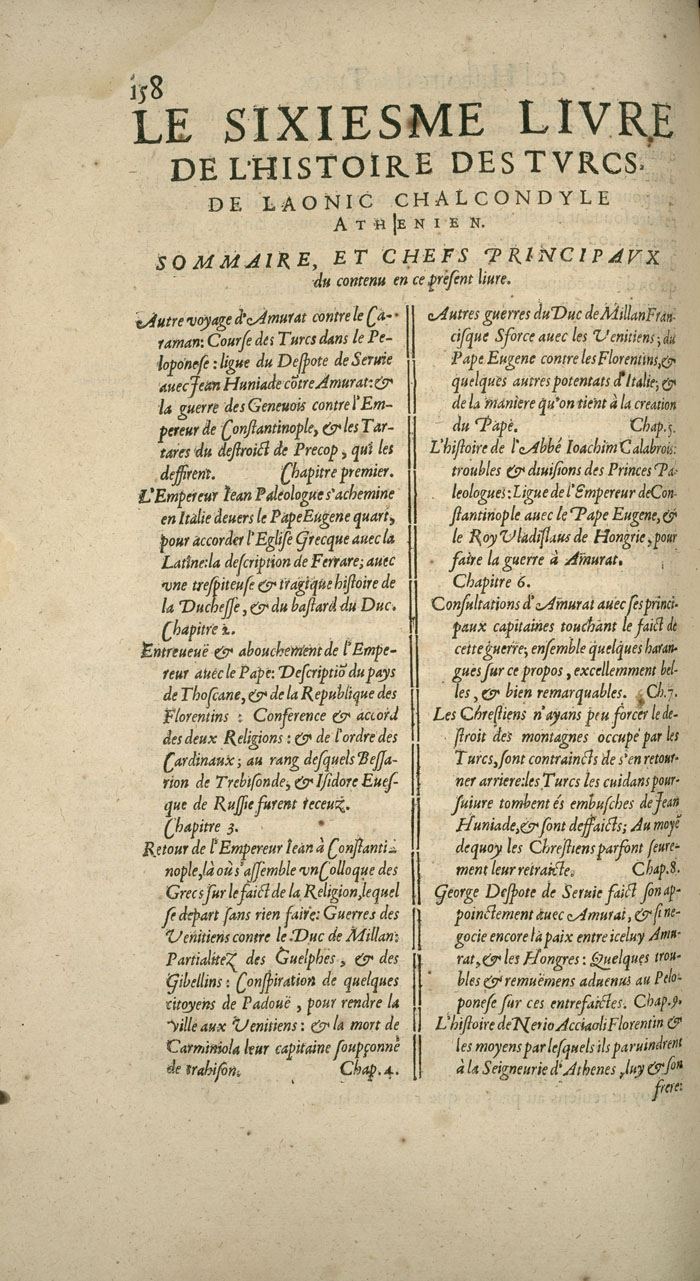 158
LE SIXIESME LIVRE
DE L'HISTOIRE DES TVRCS,
DE LAONIC CHALCONDYLE
ATHENIEN.
SOMMAIRE, ET CHEFS PRINCIPAVX
du contenu en ce preſent liure.
Autre voyage d'Amurat contre le Ca-
raman: Courſe des Turcs dans le Pe-
loponeſe : ligue du Deſpote de Seruie
auec Jean Huniade cõtre Amurat: &
la guerre des Geneuois contre l'Em-
pereur de Conſtantinople, & les Tar-
tares du deſtroict de Precop, qui les
deffirent. Chapitre premier.
L'Empereur Iean Paleologue s'achemine
en Italie deuers le Pape Eugene quart,
pour accorder l'Egliſe Grecque auec la
Latine: la deſcription de Ferrare; auec
vne treſpiteuſe & tragique hiſtoire de
la Ducheſſe, & du baſtard du Duc.
Chapitre 2.
Entreueuë & abouchement de l'Empe-
reur auec le Pape: Deſcriptiõ du pays
de Thoſcane, & de la Republique des
Florentins : Conference & accord
des deux Religions : & de l'ordre des
Cardinaux; au rang deſquels Beſſa-
rion de Trebiſonde, & Iſidore Eueſ-
que de Ruſſie furent receuz.
Chapitre 3.
Retour de l'Empereur Iean à Conſtanti-
nople, là où s'aſſemble vn Colloque des
Grecs ſur le faict de la Religion, lequel
ſe depart ſans rien faire: Guerres des
Venitiens contre le Duc de Millan:
Partialitez des Guelphes, & des
Gibellins : Conſpiration de quelques
citoyens de Padouë, pour rendre la
ville aux Venitiens : & la mort de
Carminiola leur capitaine ſoupçonné
de trahiſon. Chap. 4.
Autres guerres du Duc de Millan Fran-
ciſque Sforce auec les Venitiens; du
Pape Eugene contre les Florentins, &
quelques autres potentats d'Italie; &
de la maniere qu'on tient à la creation
du Pape. Chap. 5.
L'hiſtoire de l'Abbé Ioachim Calabrois:
troubles & diuiſions des Princes Pa-
leologues: Ligue de l'Empereur de Con-
ſtantinople auec le Pape Eugene, &
le Roy Vladiſlaus de Hongrie, pour
faire la guerre à Amurat.
Chapitre 6.
Conſultations d'Amurat auec ſes princi-
paux capitaines touchant le faict de
cette guerre; enſemble quelques haran-
gues ſur ce propos, excellemment bel-
les, & bien remarquables. Ch. 7.
Les Chreſtiens n'ayans peu forcer le de-
ſtroit des montagnes occupé par les
Turcs, ſont contraincts de s'en retour-
ner arriere: les Turcs les cuidans pour-
ſuiure tombent és embuſches de Jean
Huniade, & ſont deffaicts; Au moyẽ
dequoy les Chreſtiens parfont ſeure-
ment leur retraicte. Chap. 8.
George Deſpote de Seruie faict ſon ap-
poinctement auec Amurat, & ſi ne-
gocie encore la paix entre iceluy Amu-
rat, & les Hongres: Quelques trou-
bles & remuëmens aduenus au Pelo-
poneſe ſur ces entrefaictes. Chap. 9.
L'hiſtoire de Nerio Acciaoli Florentin &
les moyens par leſquels ils paruindrent
à la Seigneurie d'Athenes, luy & ſon
frere: